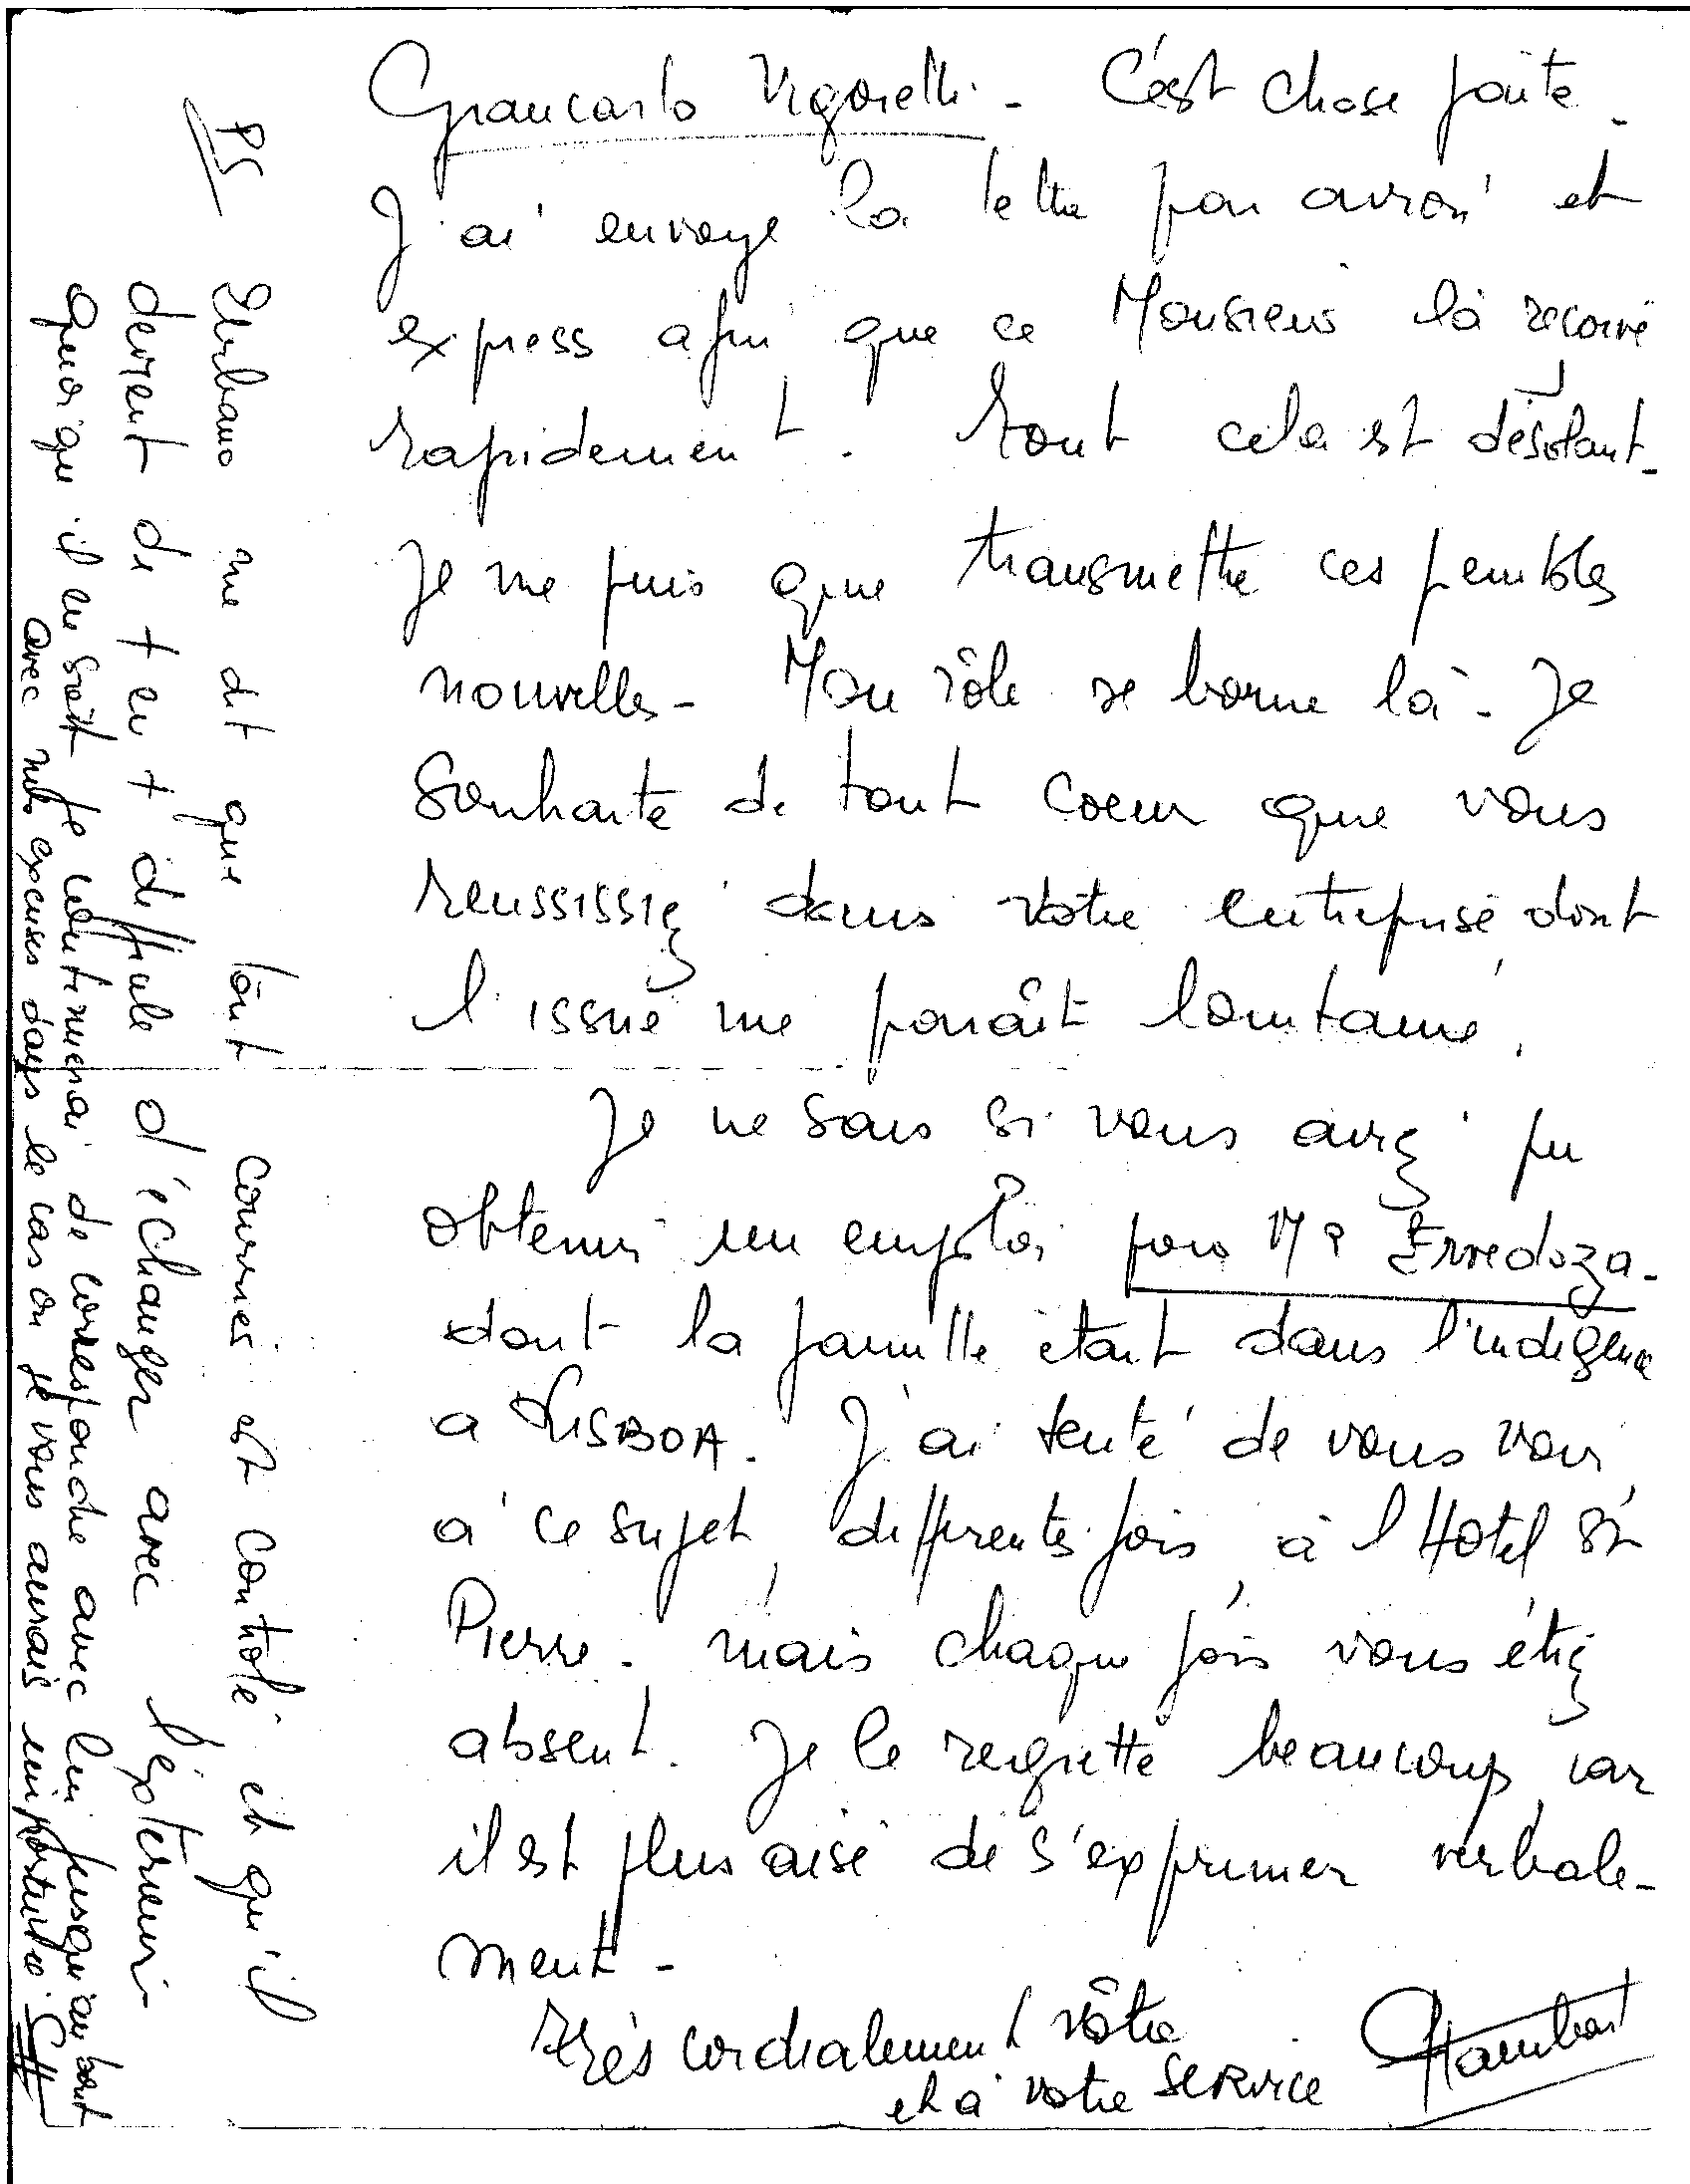 Giancarlo Vigorelli - C'est chose faite -
J'ai envoyé la lettre par avion et
express afin que ce Monsieur la reçoive
rapidement. Tout cela est désolant -
Je ne puis que transmettre ces penibles
nouvelles - Mon rôle se borne là - Je
Souhaite de tout coeur que vous
réussissiez dans votre entreprise dont
l'issue me parait lointaine.
Je ne sais si vous avez pu
obtenir un emploi pour Mr Erredoza -
dont la famille était dans l'indigence
a LISBOA. J'ai tenté de vous voir
a' ce sujet, differentes fois, à l'Hotel St
Pierre - mais chaque fois vous étiez
absent. Je le regrette beaucoup, car
il est plus aisé de s'exprimer verbale-
ment -
très cordialement vôtre
et a' votre SERVICE
PS Urbano me dit que tout courrier est controlé et qu'il
devient de + en + difficile d'échanger avec l'exterieur -
Quoi que il en soit je continuerai de correspondre avec lui jusqu'au bout
avec mes excuses dans le cas où je vous aurais importuné